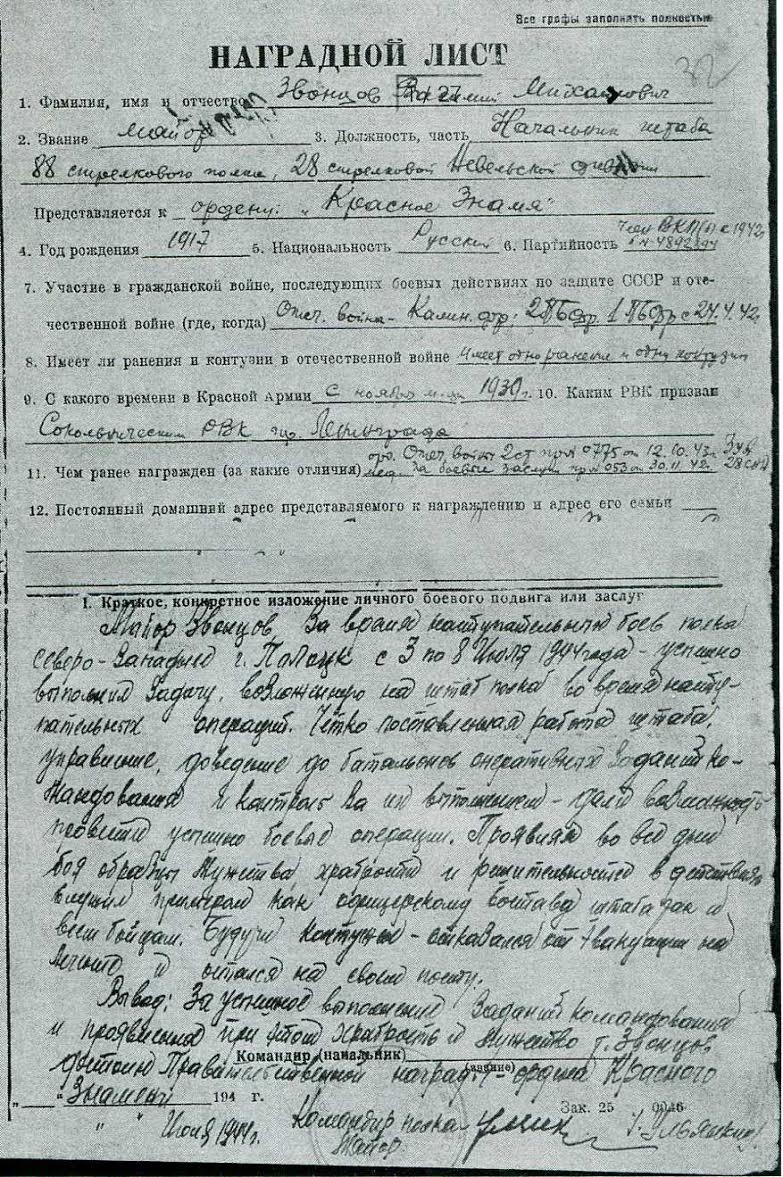 Все графы заполнять полностью
32
НАГРАДНОЙ ЛИСТ
1. Фамилия, имя и отчество Звонцов Михайлович
2. Звание майор 3. Должность, часть Начальник штаба
88 стрелкового полка, 28 стрелковой Невельской дивизии
Представляется к ордену: „Красное Знамя"
4. Год рождения 1917 5. Национальность Русский 6. Партийность член ВКП(б) с 1942
7. Участие в гражданской войне, последующих боевых действиях по защите СССР и оте-
чественной войне (где, когда) Отеч. война - Калин. фр; 2 ПБфр. 1 ПБфр с 24.4.42
8. Имеет ли ранения и контузии в отечественной войне Имеет одно ранение и одну контузию
9. С какого времени в Красной Армии с ноября м-ца 1939 г. 10. Каким РВК призван
РВК гор. Ленинграда
орд. Отеч. войны 2 ст пр № 0775 от 12.10.43г.
11. Чем ранее награжден (за какие отличия) мед. За боевые заслуги пр № 053 от 30.11.42. 28 СКД
12. Постоянный домашний адрес представляемого к награждению и адрес его семьи
I. Краткое, конкретное изложение личного боевого подвига или заслуг
Майор Звонцов, За время наступательных боев полка
северо-западнее г. Полоцк с 3 по 8 Июля 1944 года - успешно
выполнил задачу, возложенную на штаб полка во время насту-
пательных операций. Четко поставленная работа штаба,
управление, доведение до батальонов оперативных заданий ко-
мандования и контроль за их выполнением - дали возможность
провести успешно боевые операции. Проявляя во все дни
боя образцы мужества храбрости и решительности в действиях
служил примером как офицерскому составу штаба так и
всем бойцам. Будучи контужен - отказался от эвакуации на
лечение и остался на своем посту.
Вывод: За успешное выполнение заданий командования
и проявленная при этом храбрость и мужество т. Звонцов
Командир (начальник)
достоин Правительственной награды - ордена Красного
(звание)
„Знамени" 194 г.
Зак. 25 0046
" " Июля 1944г. Командир полка
майор /Ульяшкин/